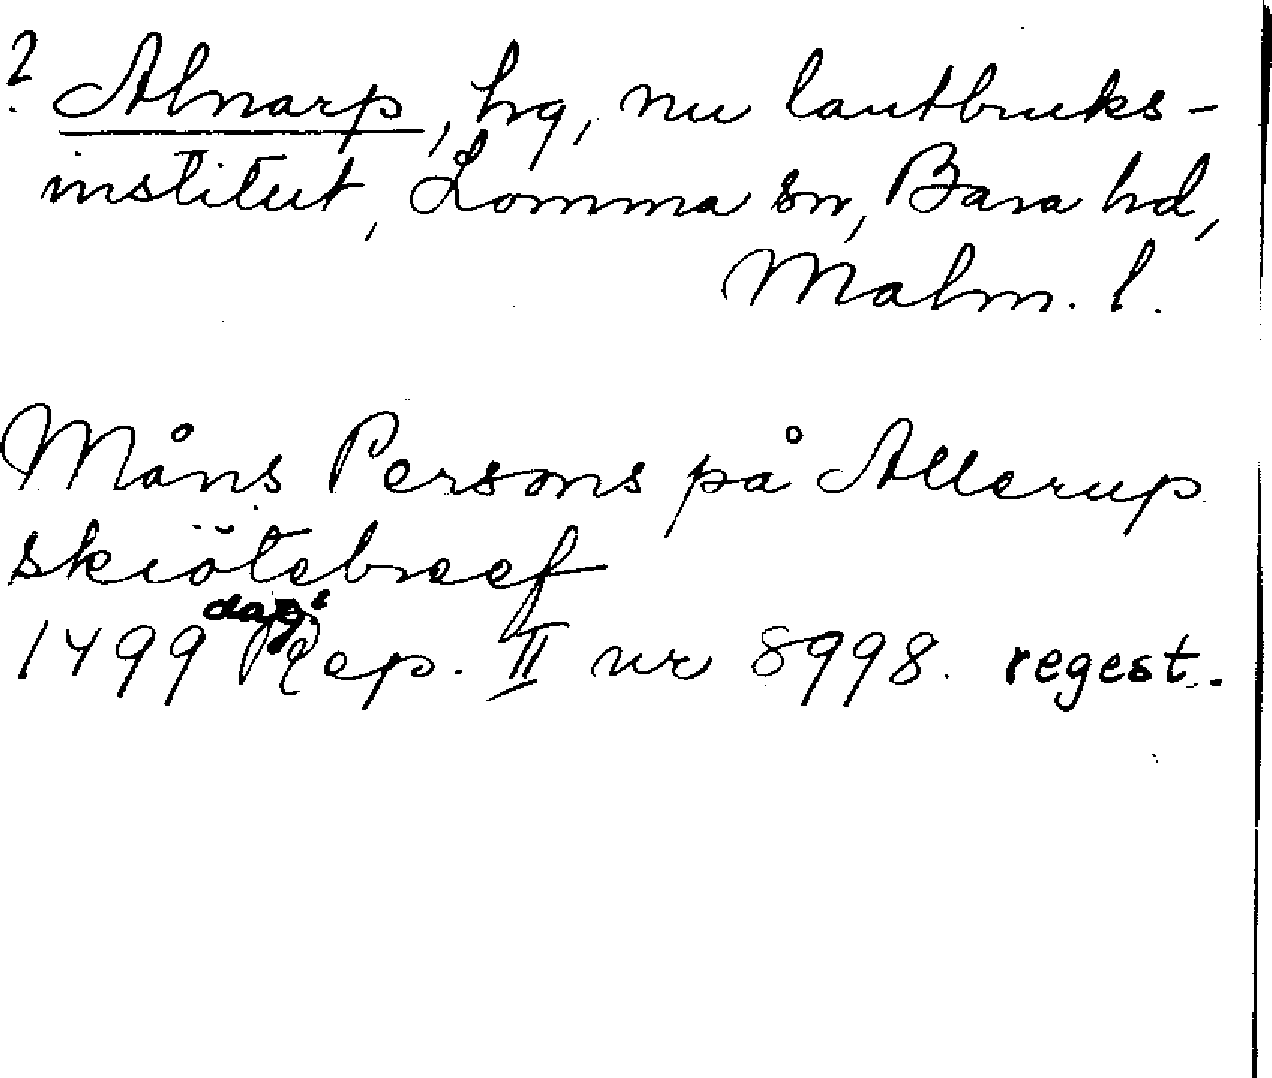 ? Alnarp, hg, nu lantbruks-
institut, Lomma sn, Bara hd,
Malm. l.
Måns Persons på Allerup
skiötebreef
dag:
1499 Rep. II nr 8998. regest.